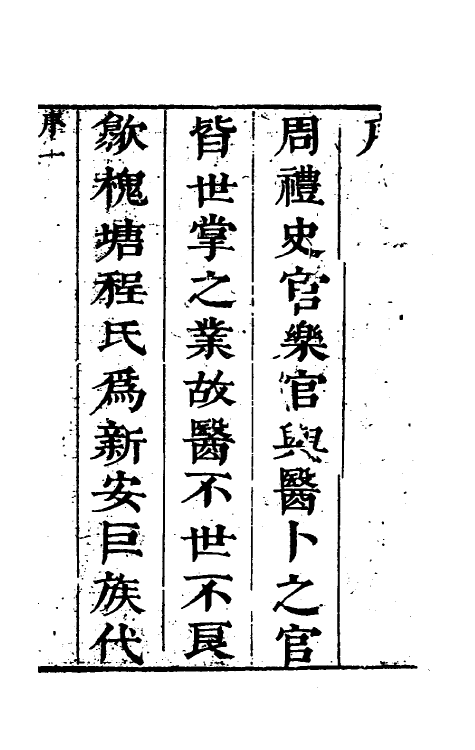 周禮史官樂官與醫卜之官
皆世掌之業故醫不世不良
歙槐塘程氏爲新安巨族代
序 一